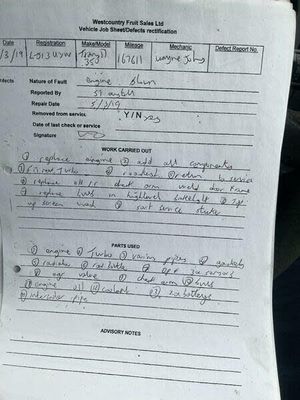 Westcountry Fruit Sales Ltd
Vehicle Job Sheet/Defects rectification
Date Registration Make/Model Mileage Mechanic Defect Report No.
/3/19 Transit 350 167611 wayne
Defects Nature of Fault engine blown
Reported By
Repair Date 5/3/19
Removed from service Y/N yes
Date of last check or service
Signature
WORK CARRIED OUT
① replace engine ② add all components
③ Fit new Turbo ④ roadtest ⑤ return to service
⑥ replace check arm weld door frame
⑦ replace bulb in highlevel ⑧
up screen wash ⑨ service sticker
PARTS USED
① engine ② Turbo ③ various pipes ④ gaskets
⑤ radiator ⑥ ⑦ DPF sensors
⑧ egr valve ⑨ check arm ⑩ bulb
⑪ engine oil ⑫ coolant ⑬ 2x batterys
⑭ intercooler pipe
ADVISORY NOTES